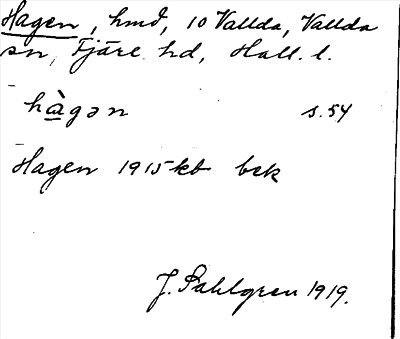 Hagen, hmd, 10 Vallda, Vallda
sn, Fjäre hd, Hall. l.
hàgən s. 54
Hagen 1915 kb bek
J. Sahlgren 1919.